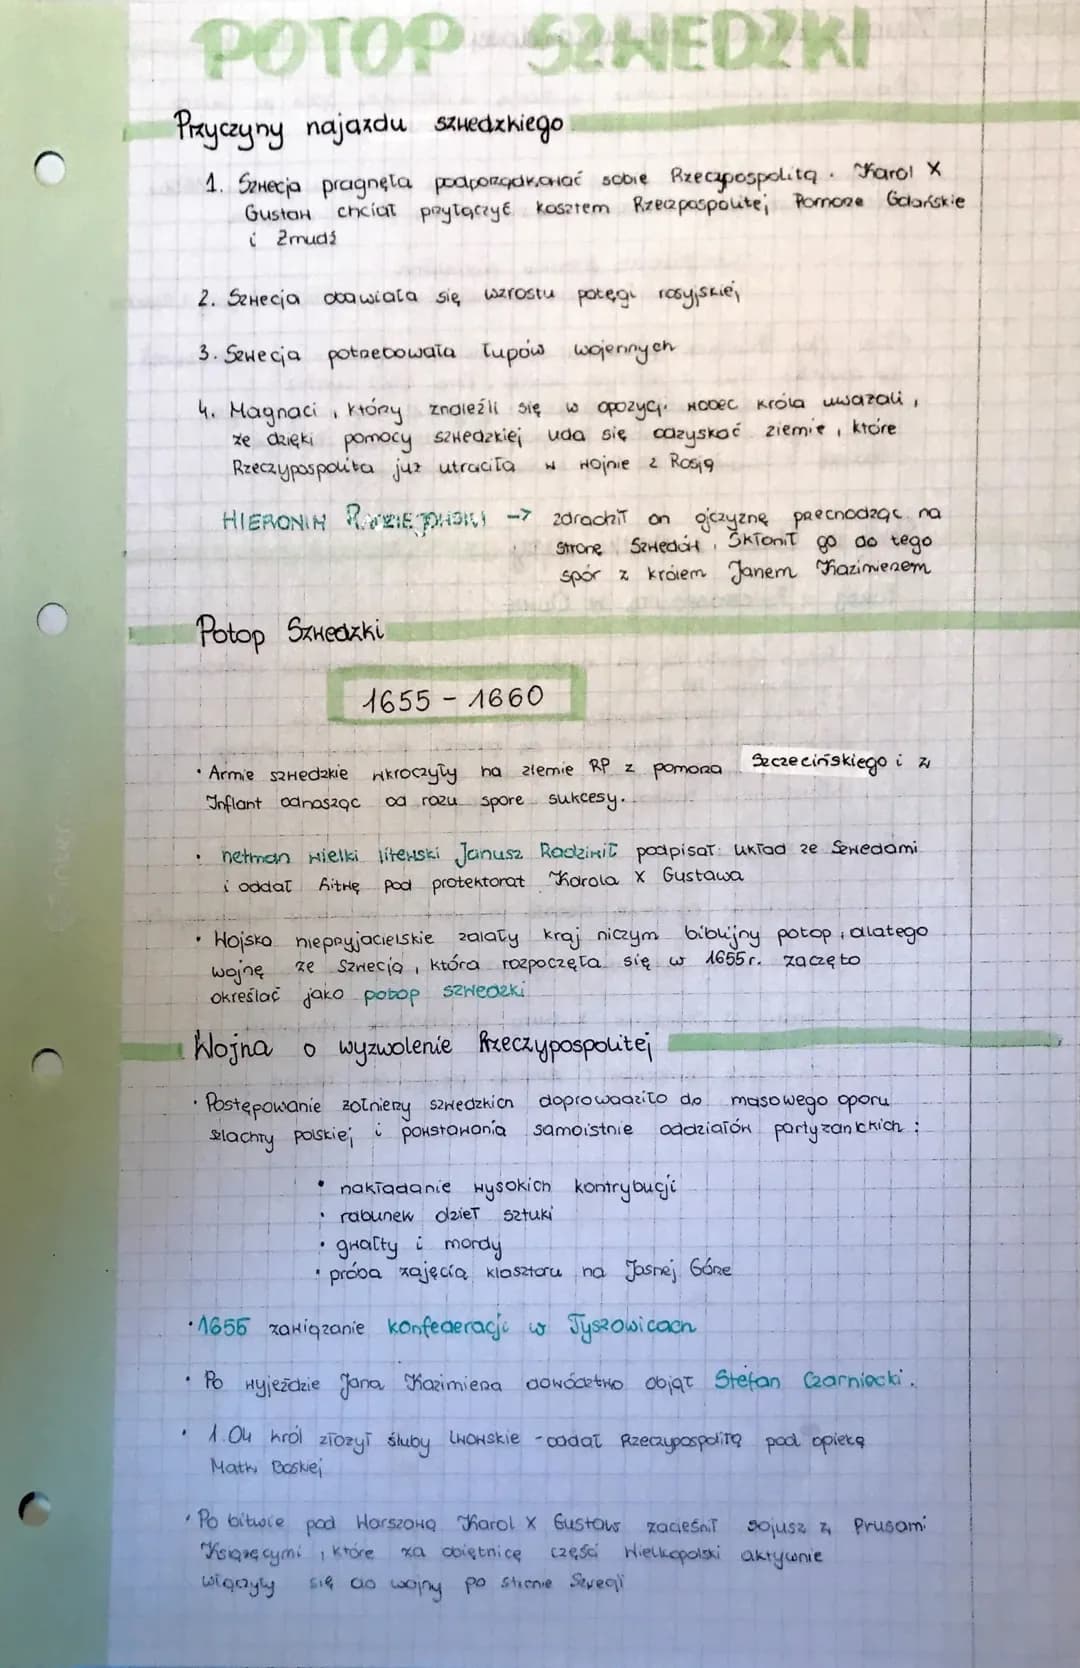 POTOP SZWEDZKI
Przyczyny najazdu szwedzkiego
1. Szwecja pragnęła podporządkować sobie Rzeczpospolitą. Karol X
Gustaw chciał przyłączyć kosztem Rzeczpospolitej Pomorze Gdańskie
i Żmudź
2. Szwecja obawiała się wzrostu potęgi rosyjskiej
3. Szwecja potrzebowała łupów wojennych
4. Magnaci, którzy znaleźli się w opozycji wobec króla uważali,
że dzięki pomocy szwedzkiej uda się odzyskać ziemie, które
Rzeczypospolita już utraciła w wojnie z Rosją
HIERONIM RADZIEJOWSKI -> zdradził on ojczyznę przechodząc na
stronę Szwedów. Skłonił go do tego
spór z królem Janem Kazimierzem
Potop Szwedzki
1655 - 1660
• Armie szwedzkie wkroczyły na ziemie RP z pomorza Szczecińskiego i z
Inflant odnosząc od razu spore sukcesy.
• hetman wielki litewski Janusz Radziwił podpisał układ ze Szwedami
i oddał Litwę pod protektorat Karola X Gustawa
• Wojsko nieprzyjacielskie zalały kraj niczym biblijny potop, dlatego
wojnę ze Szwecją, która rozpoczęła się w 1655r. zaczęto
określać jako potop szwedzki
Wojna o wyzwolenie Rzeczypospolitej
• Postępowanie żołnierzy szwedzkich doprowadziło do masowego oporu
szlachty polskiej i powstawania samoistnie oddziałów partyzanckich:
• nakładanie wysokich kontrybucji
• rabunek dzieł sztuki
• gwałty i mordy
• próba zajęcia klasztoru na Jasnej Górze
• 1655 zawiązanie konfederacji w Tyszowicach
• Po wyjeździe Jana Kazimierza dowództwo objął Stefan Czarniecki.
• 1.04 król złożył śluby lwowskie - oddał Rzeczypospolitą pod opiekę
Matki Boskiej
• Po bitwie pod Warszawą Karol X Gustaw zacieśnił sojusz z Prusami
Książęcymi, które za obietnicę części Wielkopolski aktywnie
włączyły się do wojny po stronie Szwecji